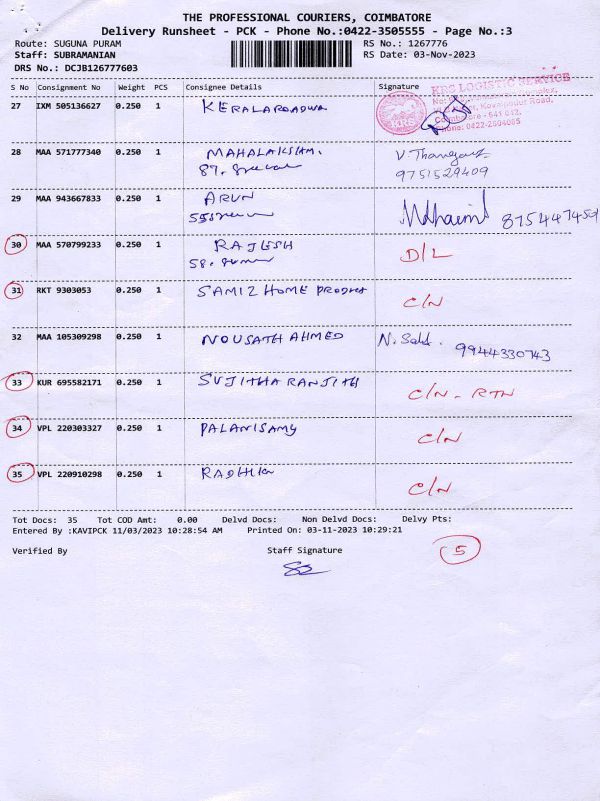 THE PROFESSIONAL COURIERS, COIMBATORE
Delivery Runsheet - PCK - Phone No.:0422-3505555 - Page No.:3
Route: SUGUNA PURAM RS No.: 1267776
Staff: SUBRAMANIAN RS Date: 03-Nov-2023
DRS No.: DCJB126777603
S No Consignment No Weight PCS Consignee Details Signature
KRS LOGISTIC SERVICE
27 IXM 505136627 0.250 1 KERALAROADWA
Kovaipudur Road,
Coimbatore - 641 042.
Phone: 0422-2604065
KRS
28 MAA 571777340 0.250 1 MAHALAKSHM. V. Thangaraj
87. 9751529409
29 MAA 943667833 0.250 1 ARUN
55 8754474501
30 MAA 570799233 0.250 1 RAJESH D/L
58.
31 RKT 9303053 0.250 1 SAMIZ HOME PRODUCT C/N
32 MAA 105309298 0.250 1 NOUSATH AHMED N. 9944330743
33 KUR 695582171 0.250 1 SUJITHA RANJITH C/N - RTN
34 VPL 220303327 0.250 1 PALANISAMY C/N
35 VPL 220910298 0.250 1 RADHIKA C/N
Tot Docs: 35 Tot COD Amt: 0.00 Delvd Docs: Non Delvd Docs: Delvy Pts:
Entered By :KAVIPCK 11/03/2023 10:28:54 AM Printed On: 03-11-2023 10:29:21
Verified By Staff Signature 5